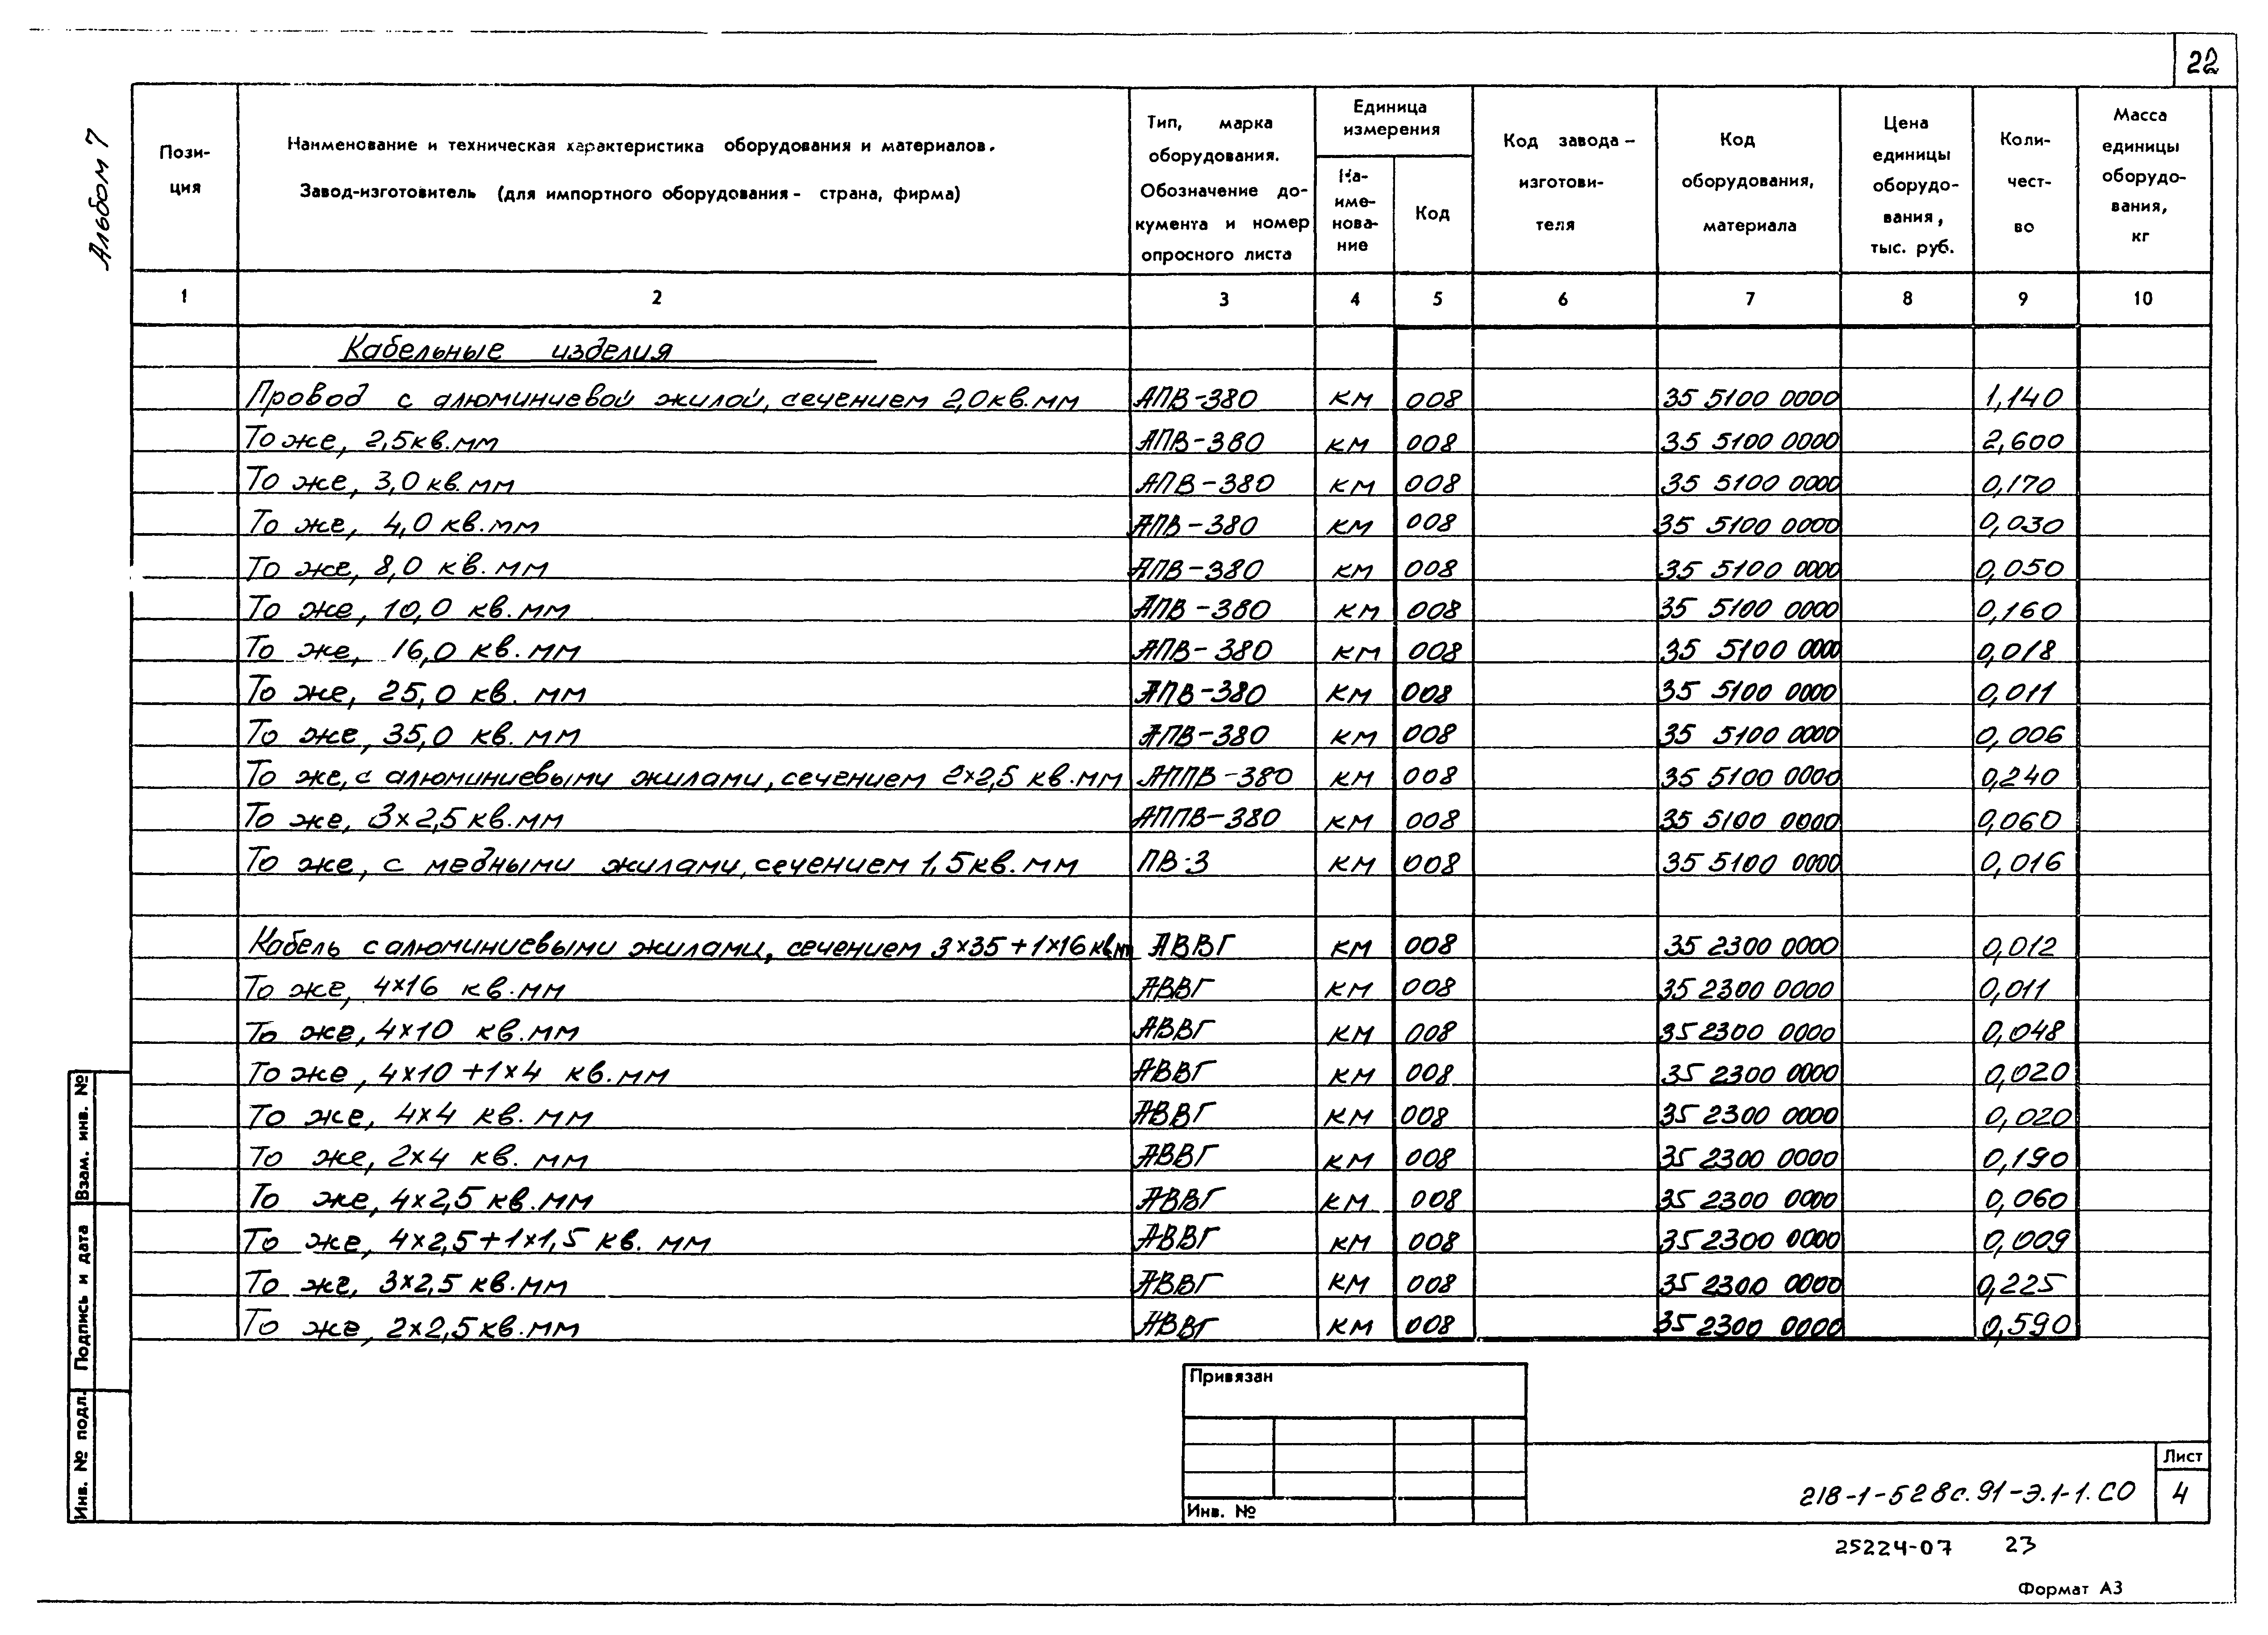 22
Альбом 7
Пози-
ция
Наименование и техническая характеристика оборудования и материалов.
Завод-изготовитель (для импортного оборудования - страна, фирма)
Тип, марка
оборудования.
Обозначение до-
кумента и номер
опросного листа
Единица
измерения
На-
име-
нова-
ние
Код
Код завода-
изготови-
теля
Код
оборудования,
материала
Цена
единицы
оборудо-
вания,
тыс. руб.
Коли-
чест-
во
Масса
единицы
оборудо-
вания,
кг
1 2 3 4 5 6 7 8 9 10
Кабельные изделия
Провод с алюминиевой жилой, сечением 2,0 кв.мм АПВ-380 км 008 35 5100 0000 1,140
То же, 2,5 кв.мм АПВ-380 км 008 35 5100 0000 2,600
То же, 3,0 кв.мм АПВ-380 км 008 35 5100 0000 0,170
То же, 4,0 кв.мм АПВ-380 км 008 35 5100 0000 0,030
То же, 8,0 кв.мм АПВ-380 км 008 35 5100 0000 0,050
То же, 10,0 кв.мм АПВ-380 км 008 35 5100 0000 0,160
То же, 16,0 кв.мм АПВ-380 км 008 35 5100 0000 0,018
То же, 25,0 кв. мм АПВ-380 км 008 35 5100 0000 0,011
То же, 35,0 кв. мм АПВ-380 км 008 35 5100 0000 0,006
То же, с алюминиевыми жилами, сечением 2×2,5 кв.мм АППВ-380 км 008 35 5100 0000 0,240
То же, 3×2,5 кв.мм АППВ-380 км 008 35 5100 0000 0,060
То же, с медными жилами, сечением 1,5 кв.мм ПВ-3 км 008 35 5100 0000 0,016
Кабель с алюминиевыми жилами, сечением 3×35+1×16 кв.мм АВВГ км 008 35 2300 0000 0,012
То же, 4×16 кв.мм АВВГ км 008 35 2300 0000 0,011
То же, 4×10 кв.мм АВВГ км 008 35 2300 0000 0,048
То же, 4×10+1×4 кв.мм АВВГ км 008 35 2300 0000 0,020
То же, 4×4 кв.мм АВВГ км 008 35 2300 0000 0,020
То же, 2×4 кв. мм АВВГ км 008 35 2300 0000 0,190
То же, 4×2,5 кв.мм АВВГ км 008 35 2300 0000 0,060
То же, 4×2,5+1×1,5 кв. мм АВВГ км 008 35 2300 0000 0,009
То же, 3×2,5 кв.мм АВВГ км 008 35 2300 0000 0,225
То же, 2×2,5 кв.мм АВВГ км 008 35 2300 0000 0,590
Взам. инв. №
Подпись и дата
Инв. № подл.
Привязан
Инв. №
218-1-528с.91-Э.1-1.СО
Лист
4
25224-07 23
Формат А3